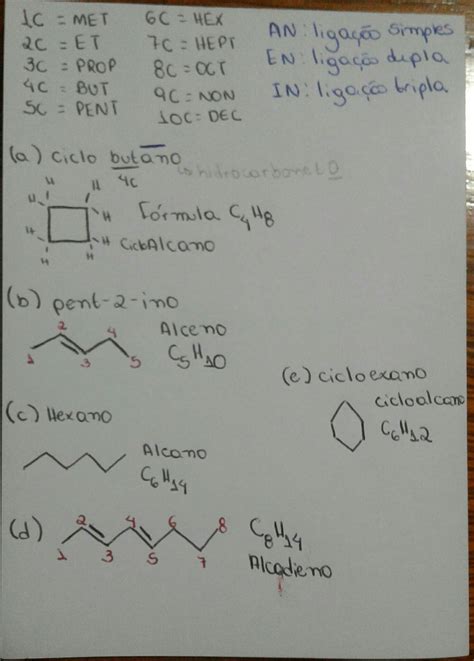 1C = MET
2C = ET
3C = PROP
4C = BUT
5C = PENT
6C = HEX
7C = HEPT
8C = OCT
9C = NON
10C = DEC
AN: ligação simples
EN: ligação dupla
IN: ligação tripla
(a) ciclo butano
4C
↳ hidrocarboneto
H H
H H
H H
H H
Fórmula C4H8
CicloAlcano
(b) pent-2-ino
1 2 3 4 5
Alceno
C5H10
(c) Hexano
Alcano
C6H14
(d)
1 2 3 4 5 6 7 8
C8H14
Alcadieno
(e) cicloexano
cicloalcano
C6H12